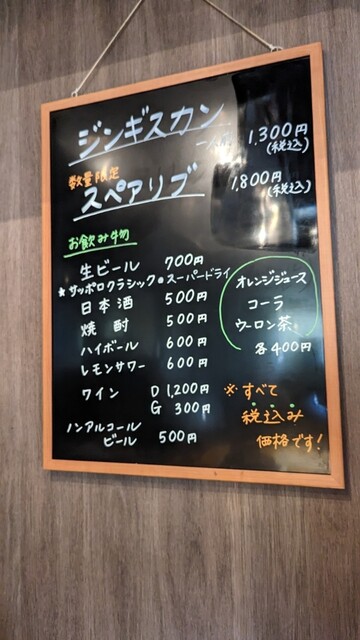 ジンギスカン
一人前 1,300円
(税込)
数量限定
スペアリブ 1,800円
(税込)
お飲み物
生ビール 700円
★サッポロクラシック・スーパードライ
日本酒 500円
焼酎 500円
ハイボール 600円
レモンサワー 600円
ワイン D 1,200円
G 300円
ノンアルコール
ビール 500円
オレンジジュース
コーラ
ウーロン茶
各400円
※すべて
税込み
価格です!